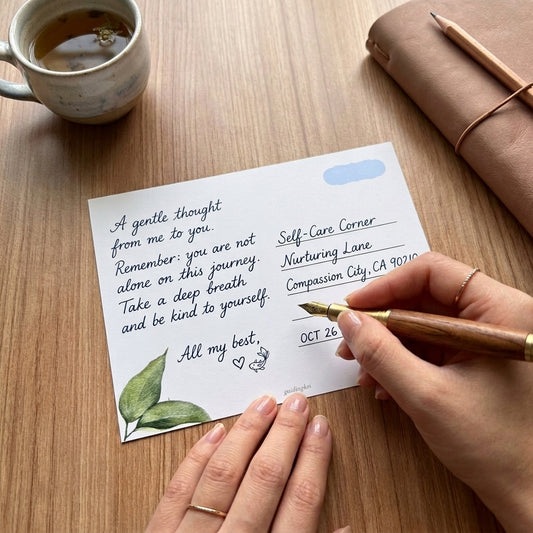 A gentle thought
from me to you.
Remember: you are not
alone on this journey.
Take a deep breath
and be kind to yourself.
All my best,
Self-Care Corner
Nurturing Lane
Compassion City, CA 90210
OCT 26